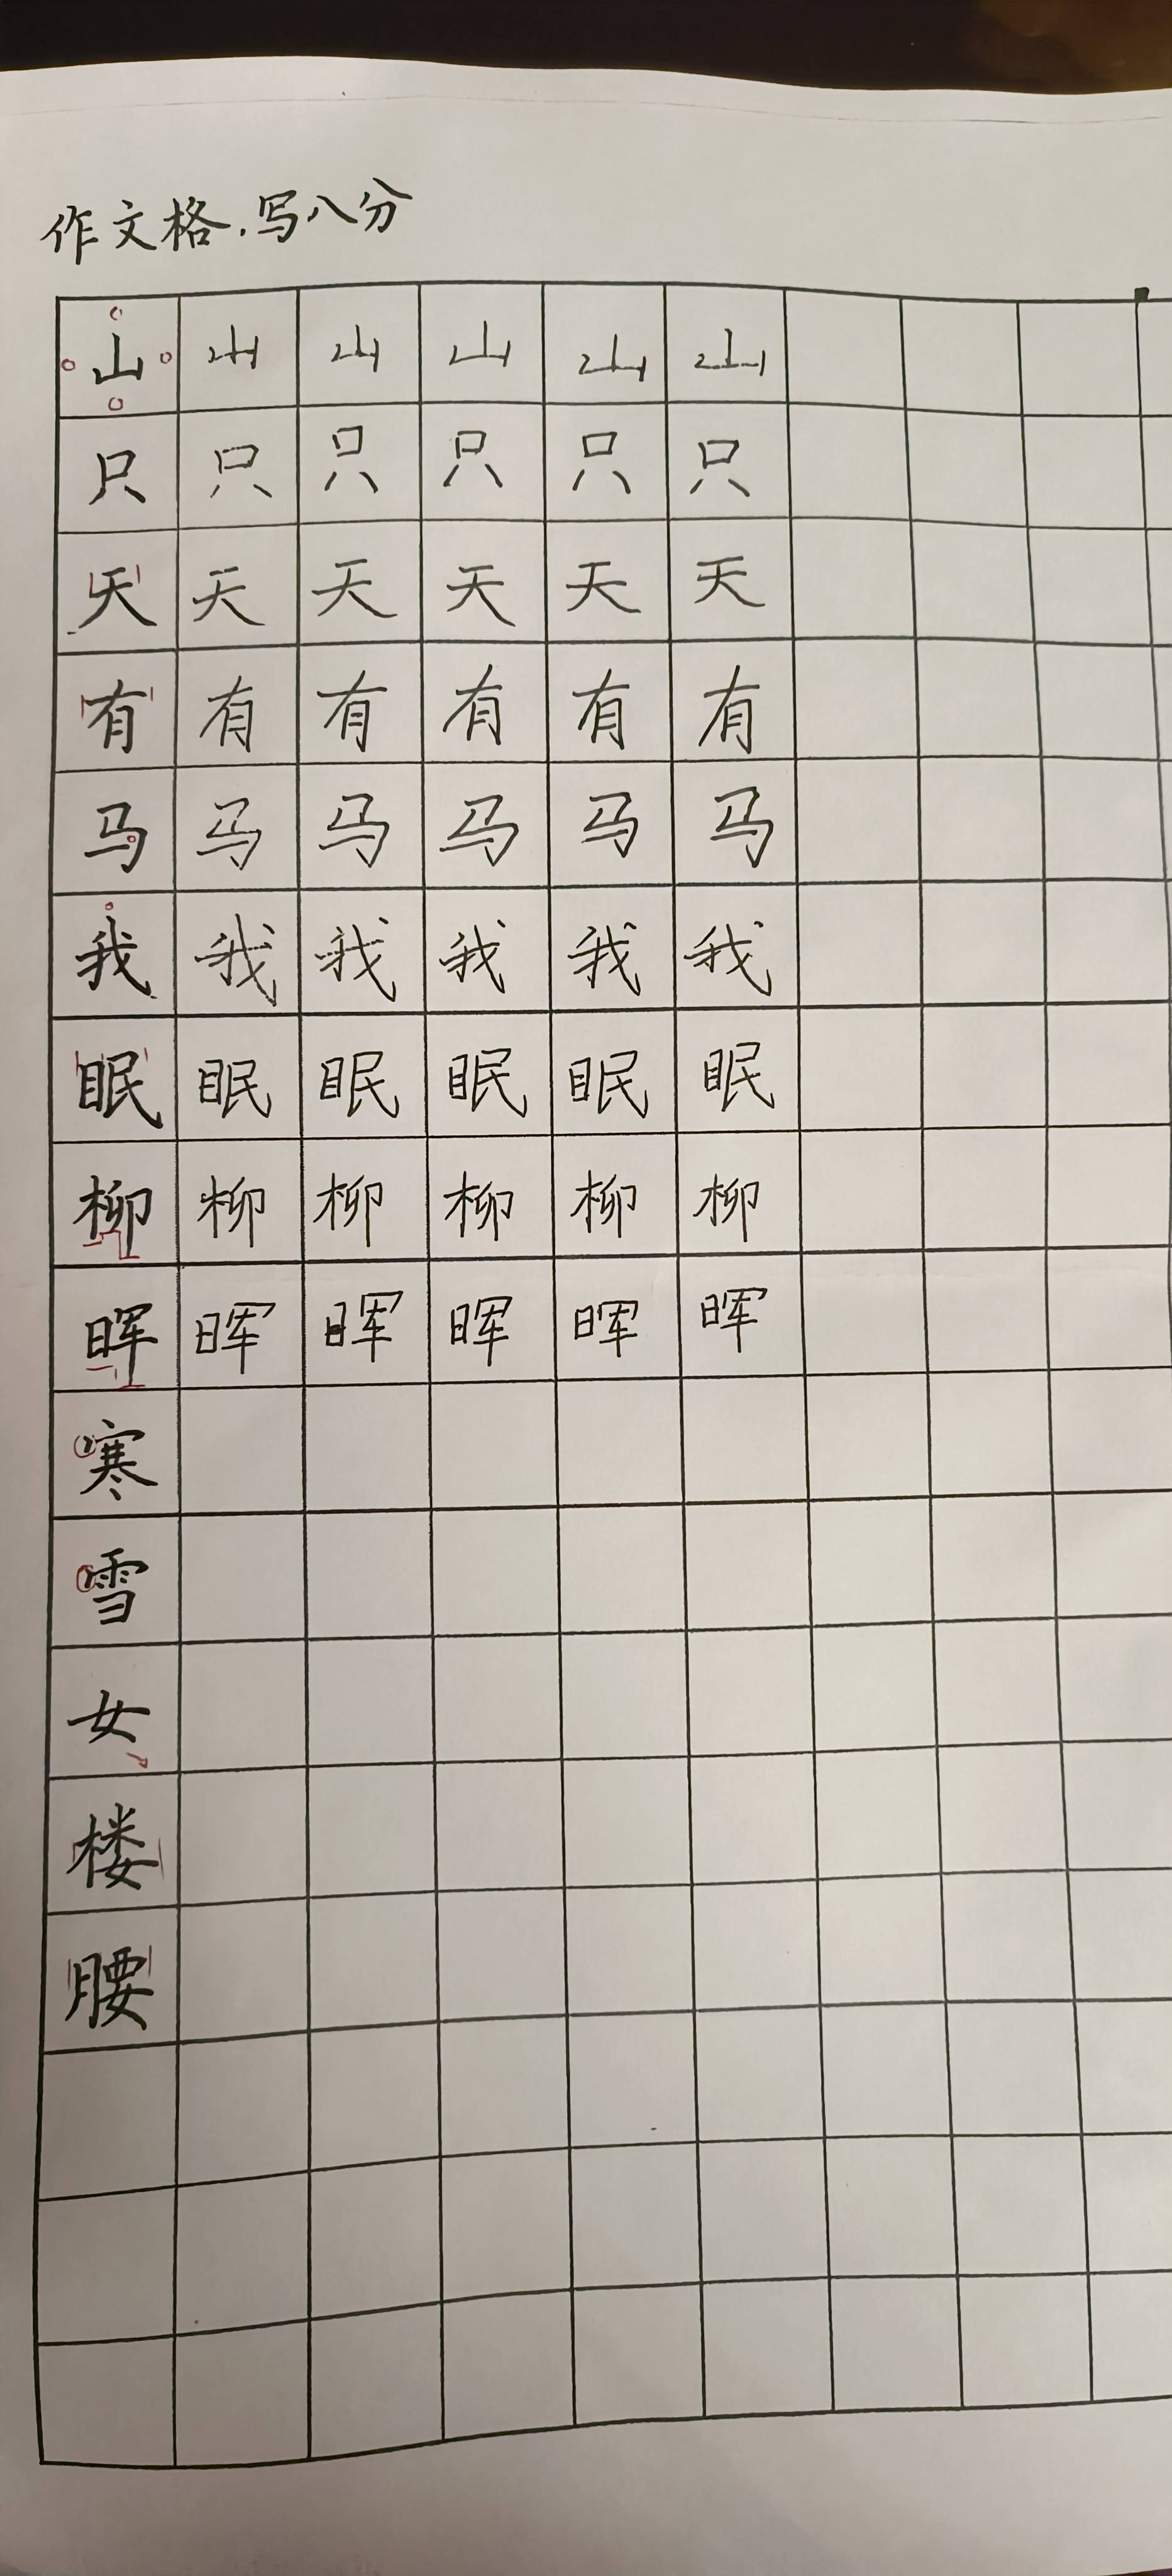 作文格.写八分
山 山 山 山 山 山
只 只 只 只 只 只
天 天 天 天 天 天
有 有 有 有 有 有
马 马 马 马 马 马
我 我 我 我 我 我
眠 眠 眠 眠 眠 眠
柳 柳 柳 柳 柳 柳
晖 晖 晖 晖 晖 晖
寒
雪
女
楼
腰